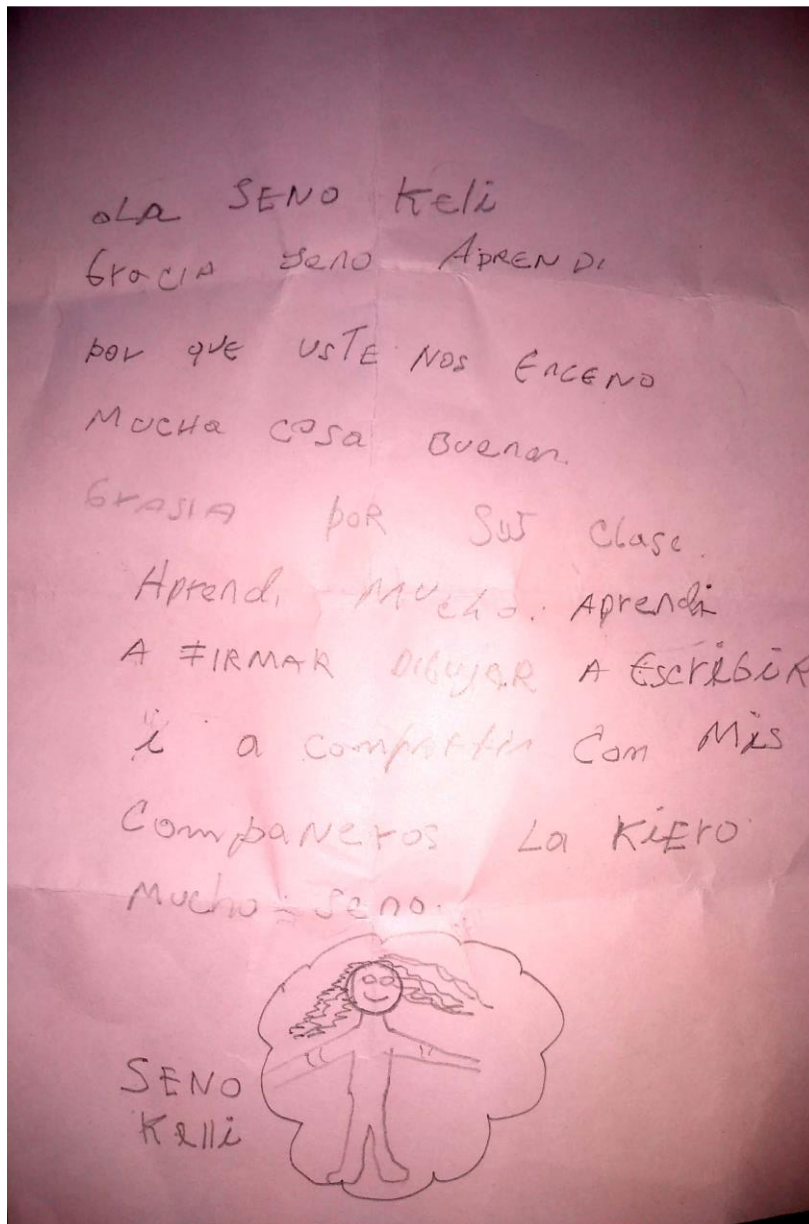 oLA SENO Keli
GraCIA seno APRENDi
por qUE USTE NOS EnCENO
MUCHa COSa Buenan.
GrASIA poR SUS Clase.
Aprendi MUcho. Aprendi
A FIRMAR DIBUJAR A EscriBiR
i a compartir Con Mis
CompaNeros La KiEro
Mucho seno.
SENO
Kelli